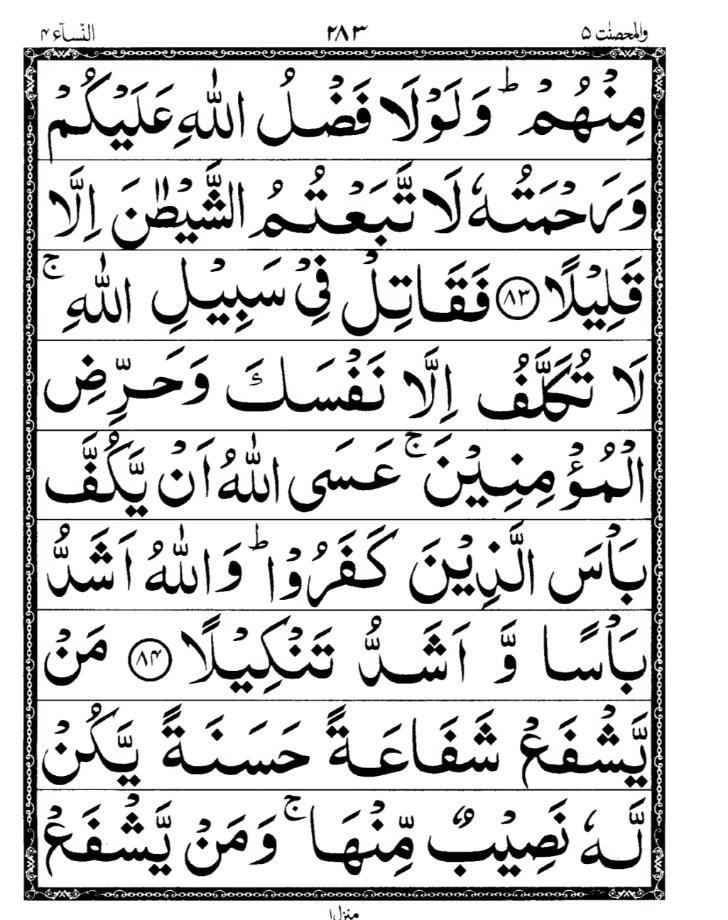 والمحصنٰت ۵ ۲۸۳ النّسآء ۴
مِنْهُمْ ؕ وَلَوْلَا فَضْلُ اللّٰهِ عَلَيْكُمْ
وَرَحْمَتُهٗ لَا تَّبَعْتُمُ الشَّيْطٰنَ اِلَّا
قَلِيْلًا ﴿۸۳﴾ فَقَاتِلْ فِيْ سَبِيْلِ اللّٰهِ ۚ
لَا تُكَلَّفُ اِلَّا نَفْسَكَ وَحَرِّضِ
الْمُؤْمِنِيْنَ ۚ عَسَى اللّٰهُ اَنْ يَّكُفَّ
بَاْسَ الَّذِيْنَ كَفَرُوْا ؕ وَاللّٰهُ اَشَدُّ
بَاْسًا وَّ اَشَدُّ تَنْكِيْلًا ﴿۸۴﴾ مَنْ
يَّشْفَعْ شَفَاعَةً حَسَنَةً يَّكُنْ
لَّهٗ نَصِيْبٌ مِّنْهَا ۚ وَمَنْ يَّشْفَعْ
منزل۱